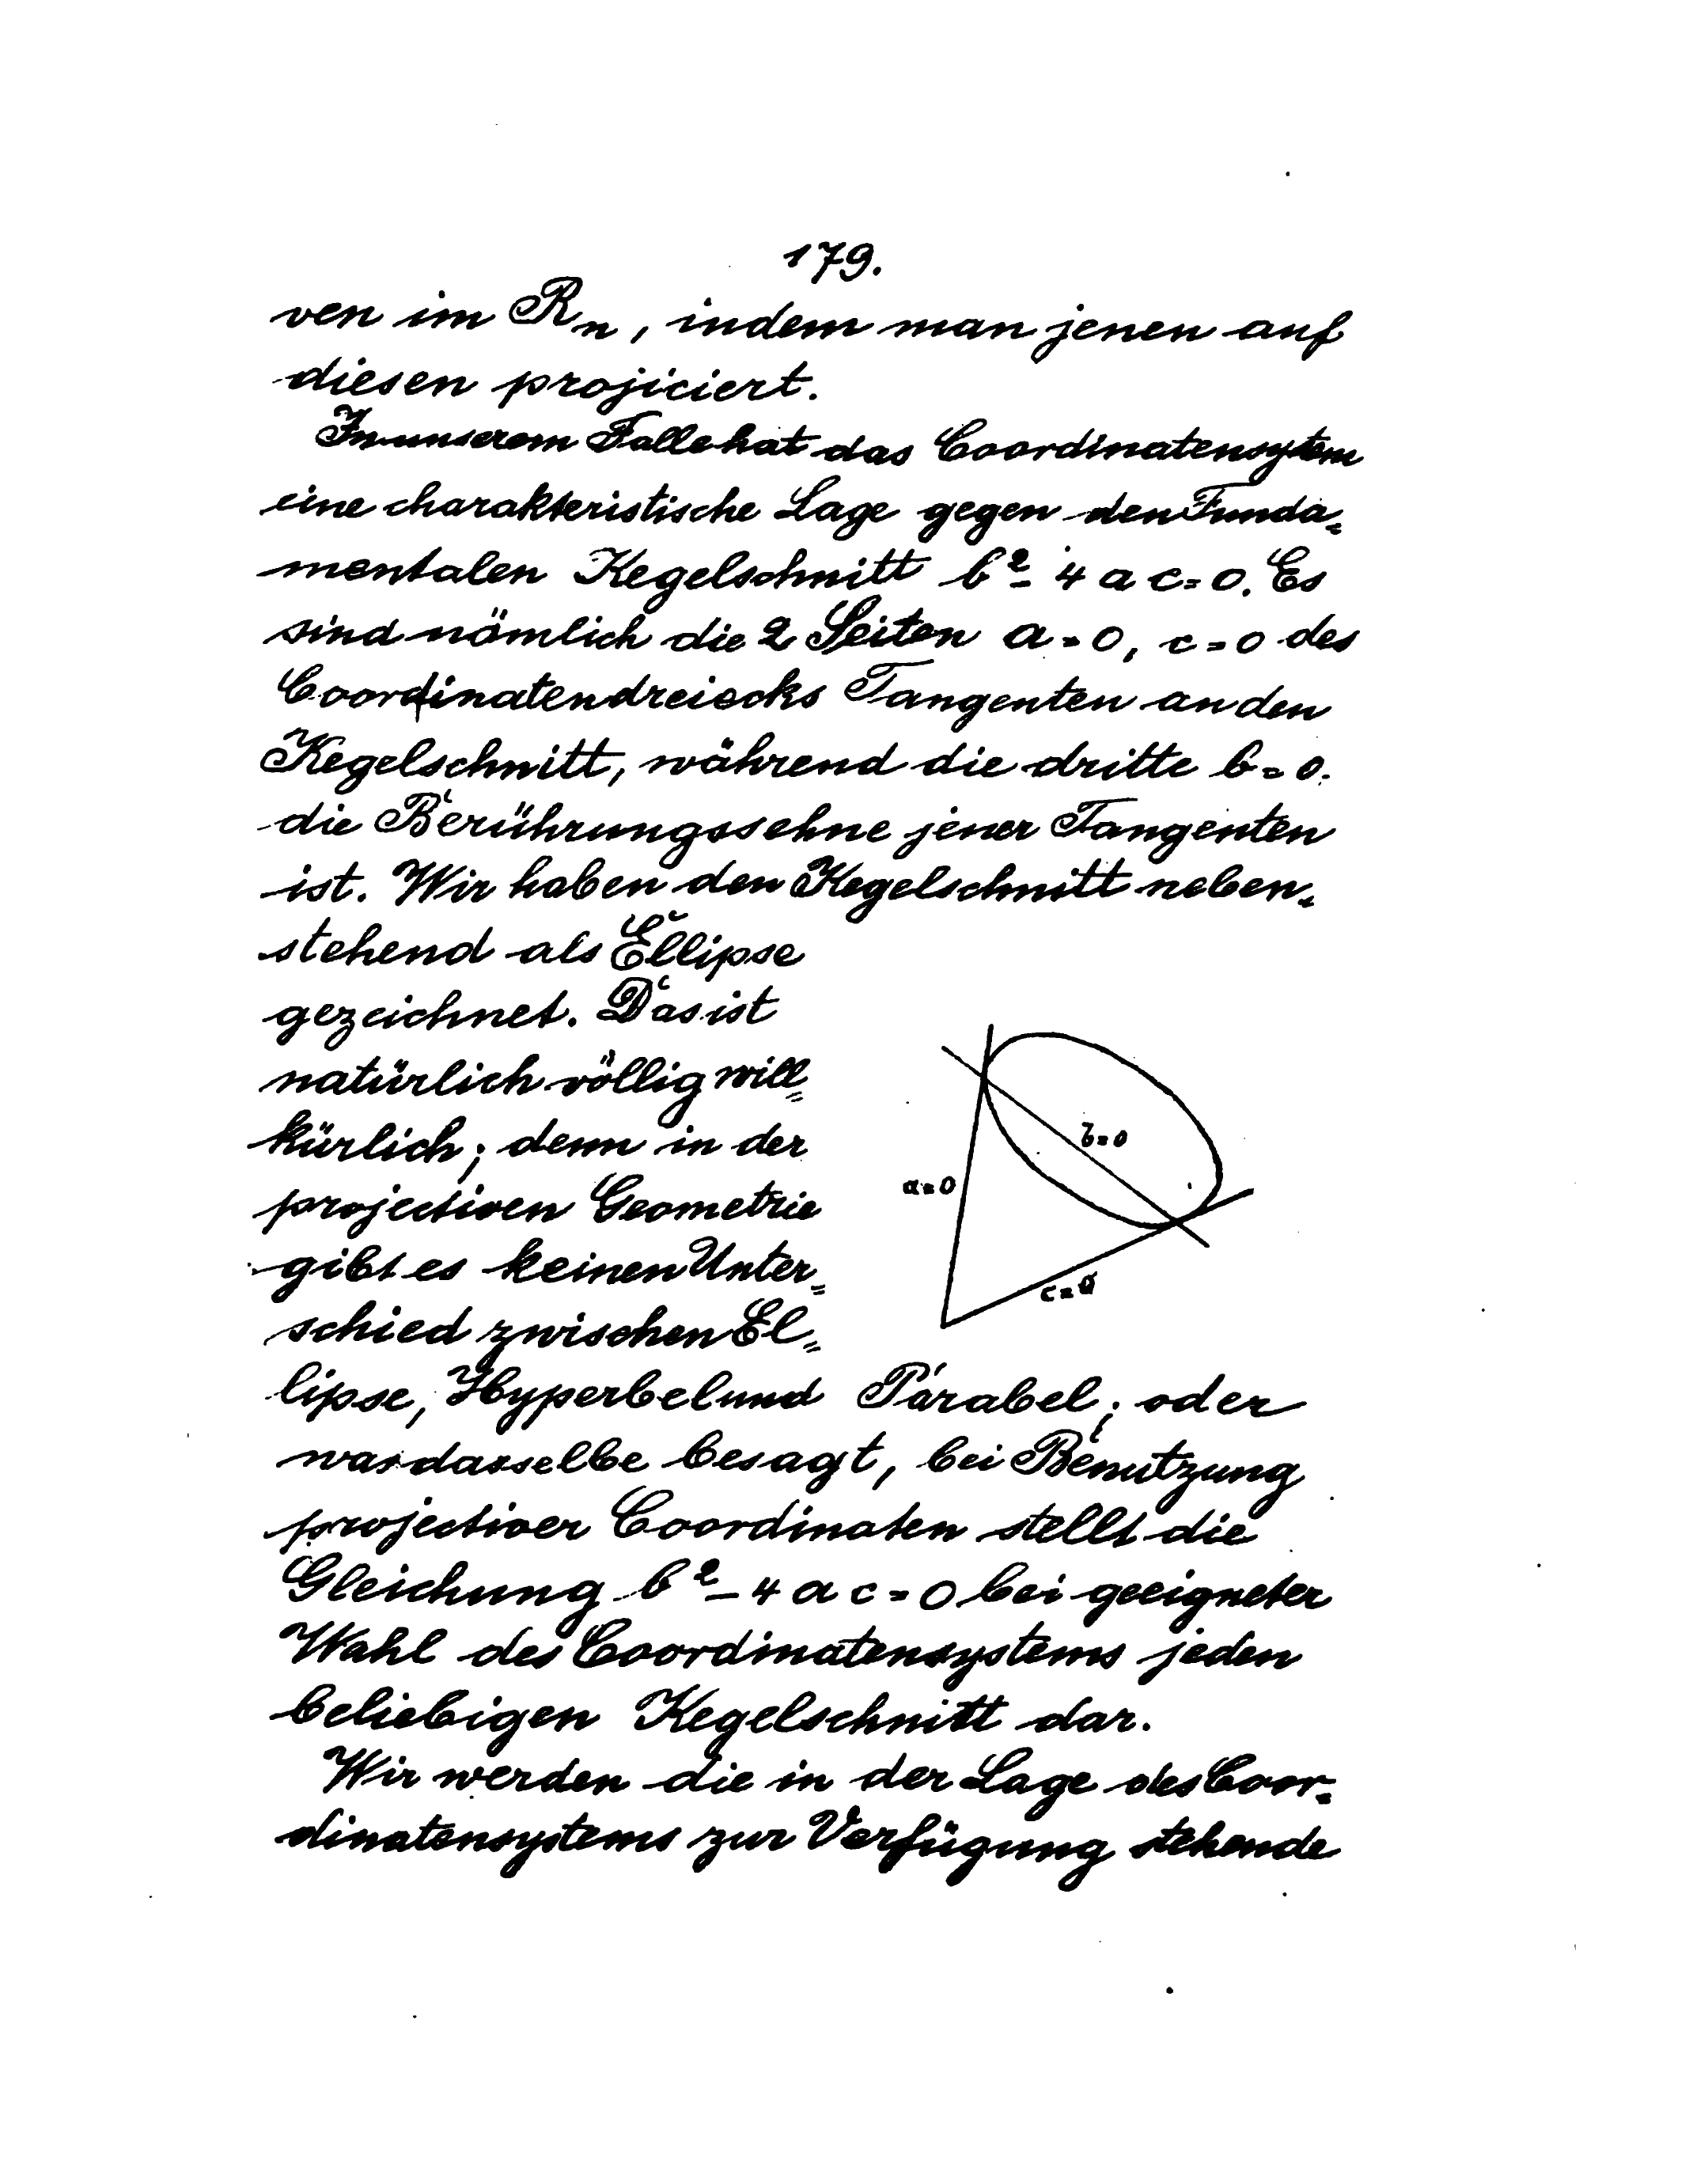 179.
ven im Rₙ, indem man jenen auf
diesen projiciert.
In unserem Falle hat das Coordinatensystem
eine charakteristische Lage gegen den Funda=
mentalen Kegelschnitt b² - 4 a c = 0. Es
sind nämlich die 2 Seiten a = 0, c = 0 des
Coordinatendreiecks Tangenten an den
Kegelschnitt, während die dritte b = 0.
die Berührungssehne jener Tangenten
ist. Wir haben den Kegelschnitt neben=
stehend als Ellipse
gezeichnet. Das ist
natürlich völlig will=
kürlich; denn in der
projectiven Geometrie
gibt es keinen Unter=
schied zwischen El=
b=0
a=0
c=0
lipse, Hyperbel und Parabel; oder
was dasselbe besagt, bei Benutzung
projectiver Coordinaten stellt die
Gleichung b² - 4 a c = 0 bei geeigneter
Wahl des Coordinatensystems jeden
beliebigen Kegelschnitt dar.
Wir werden die in der Lage des Coor=
dinatensystems zur Verfügung stehende